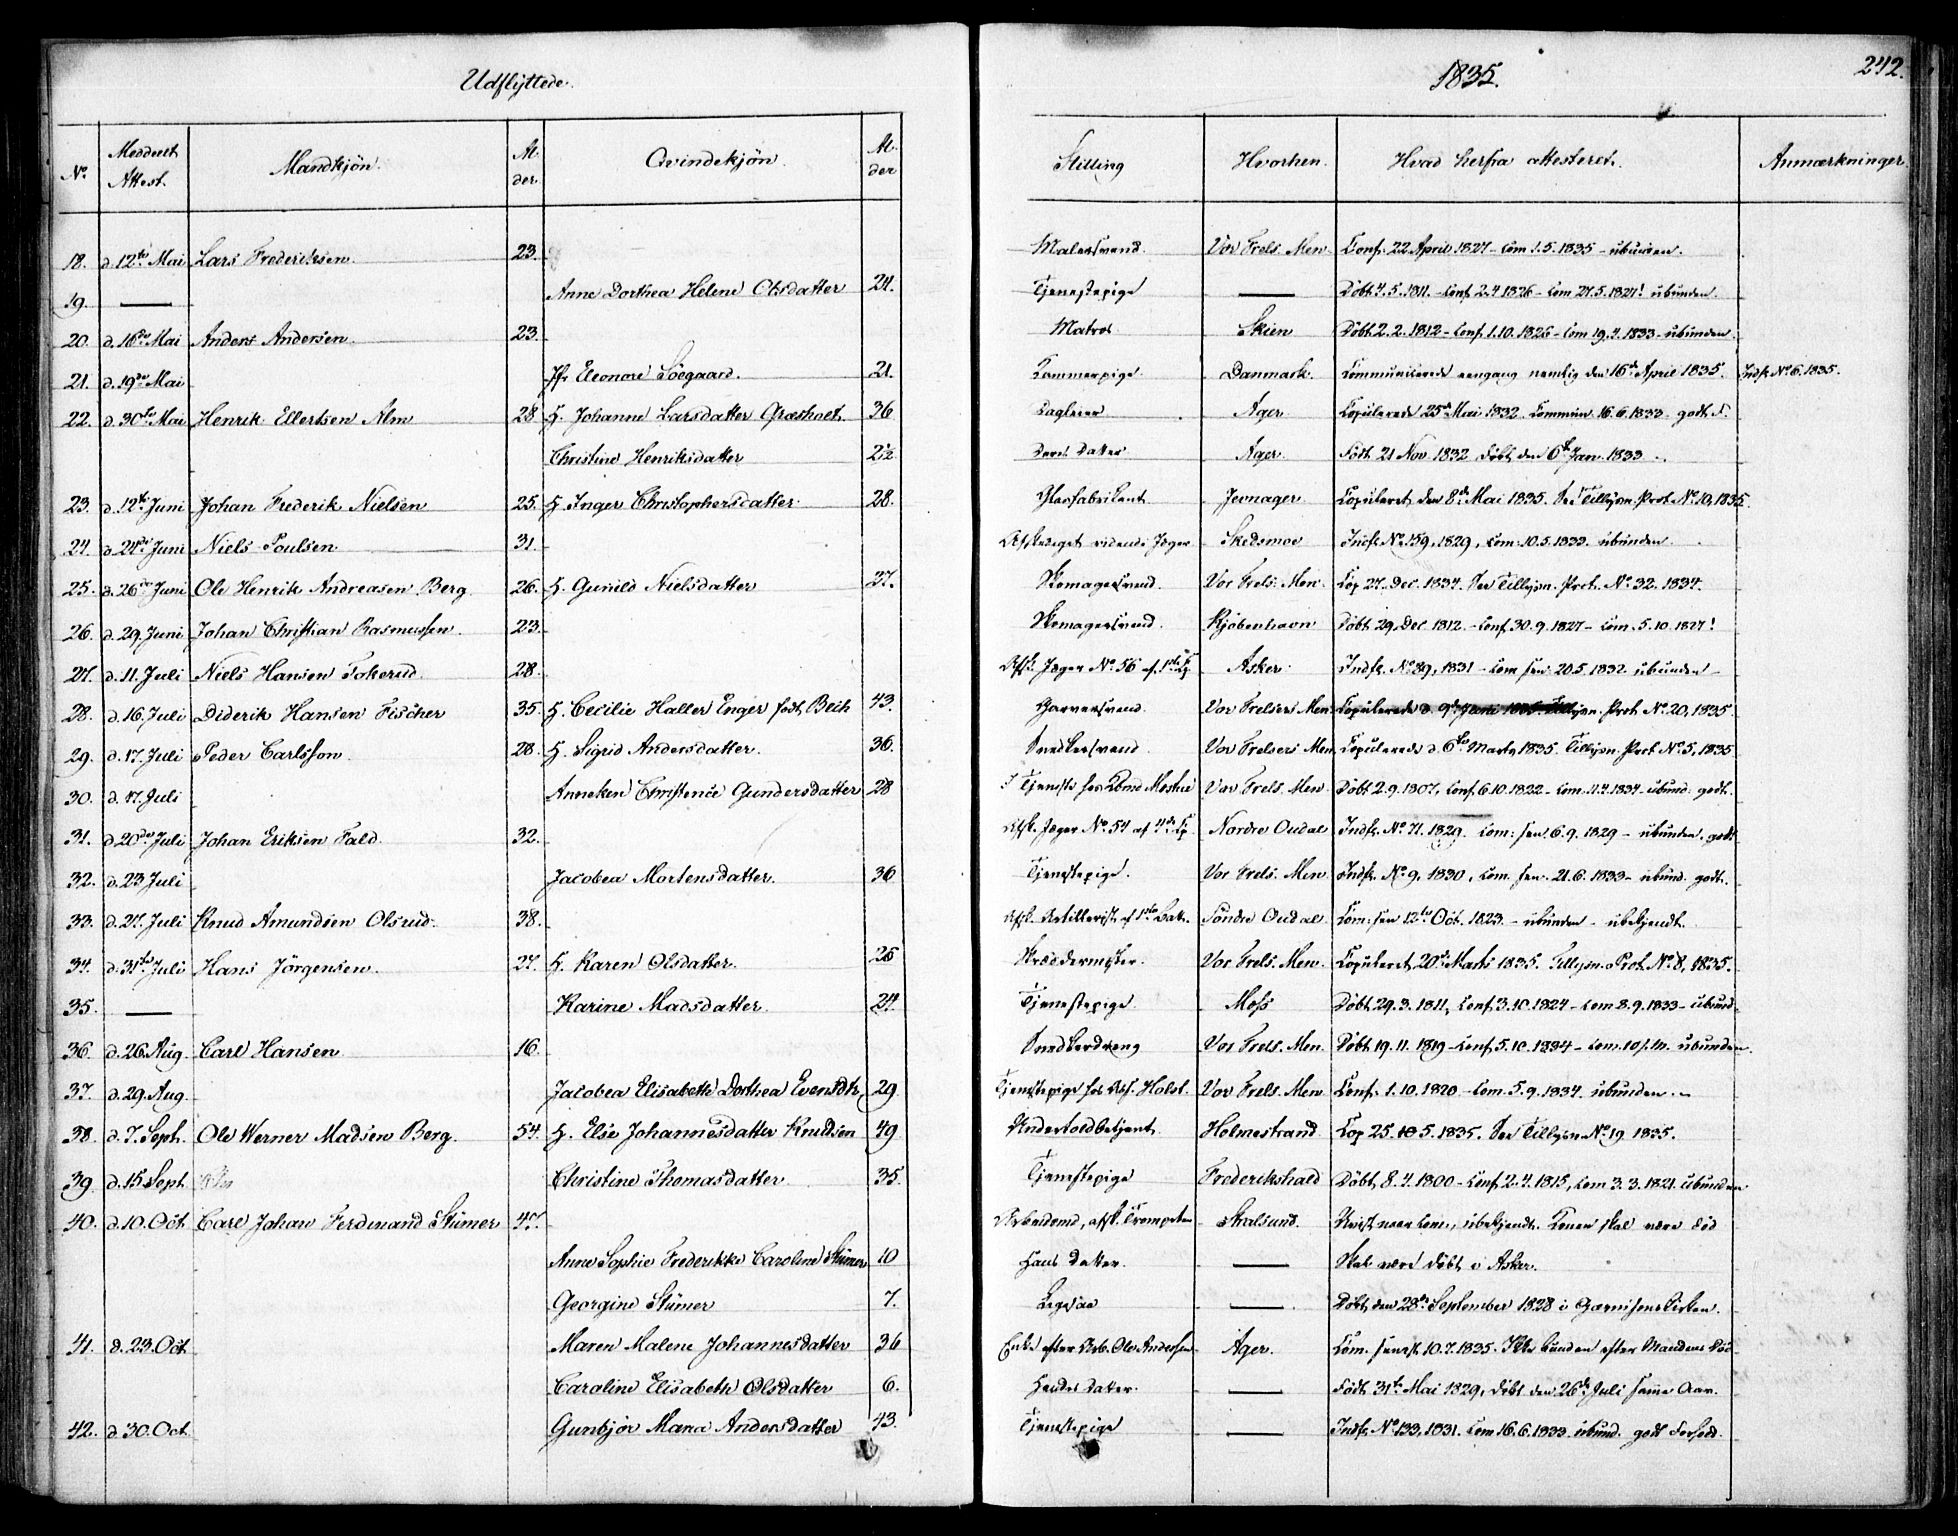 Udflyttede.
1835.
242.
No. Meddeelt Attest. Mandkjön. Alder. Qvindekjön. Alder Stilling Hvorhen. Hvad herfra attesteret. Anmærkninger.
18. d. 12te Mai Lars Frederiksen. 23. Malersvend. Vor Frels. Men. Conf. 22 April 1827 - Com 1.5.1835 - ubunden.
19. — Anne Dorthea Helene Olsdatter 24. Tjenestepige — Döbt 4.5.1811. - Conf. 2.4.1826 - Com 27.5.1827! ubunden.
20. d. 16de Mai Anders Andersen. 23. Matros Skien Döbt 2.2.1812 - Conf. 1.10.1826 - Com 19.4.1833 - ubunden.
21. d. 19de Mai Jfr Eleonore Söegaard. 21. Kammerpige Danmark. Communicerede eengang nemlig den 16de April 1835. Indf. No. 6. 1835.
22. d. 30te Mai Henrik Ellertsen Alm 28 H. Johanne Larsdatter Græsholt. 36 Dagleier Ager Copulerede 25de Mai 1832. Commun. 16.6.1833. godt F.
Christine Henriksdatter 2½ Deres Datter Ager. Födt 21 Nov. 1832 döbt den 6te Jan. 1833.
23. d. 12te Juni Johan Frederik Nielsen 25. H. Inger Christophersdatter. 28. Glasfabrikent. Jevnager. Copuleret den 8de Mai 1835. See Tillysn. Prot. No. 10, 1835
24. d. 24de Juni Niels Poulsen 31. Afskediget ridende Jæger Skedsmoe Indf. No. 159, 1829, Com: 10.5.1833. ubunden.
25. d. 26de Juni Ole Henrik Andreasen Berg 26. H. Gunild Nielsdatter 37. Skomagersvend. Vor Frels. Men. Cop 27. Dec. 1834. See Tillysn. Prot. No. 32. 1834.
26. d. 29. Juni Johan Christian Rasmussen. 23. Skomagersvend. Kjöbenhavn Döbt 29. Dec. 1812. - Conf. 30.9.1827 - Com. 5.10.1827!
27. d. 11. Juli Niels Hansen Tokerud. 28. Afsk. Jæger No. 56 af 1ste Cp. Asker. Indf. No. 89, 1831 - Com sen. 20.5.1832 ubunden
28. d. 16. Juli Diderik Hansen Fischer 35. H. Cecilie Haller Enger födt Beih 43. Garversvend. Vor Frelsers Men. Copulerede d. 9de Juni 1835. Tillysn. Prot. No. 20, 1835
29. d. 17. Juli Peder Carlsson. 28. H. Sigrid Andersdatter. 36. Snedkersvend. Vor Frelsers Men. Copulerede d. 6te Marts 1835. Tillysn. Prot. No. 5, 1835
30. d. 17. Juli Anneken Christence Gundersdatter 28 I Tjeneste hos Kbmd Vor Frels. Men. Döbt 2.9.1807, Conf. 6.10.1822 - Com. 11.4.1834 - ubund. godt.
31. d. 20de Juli Johan Eriksen Fald. 32. Afsk. Jæger No. 54 af 4de Cp. Nordre Oudal Indf. No. 71. 1829. Com: sen. 6.9.1829 - ubunden. godt
32. d. 23 Juli Jacobea Mortensdatter. 36 Tjenestepige. Vor Frels. Men Indf. No. 9, 1830, Com. sen. 21.6.1833 - ubund. godt.
33. d. 27. Juli Knud Amundsen Olsrud. 38. Afsk. Artillerist af 1ste Batt. Söndre Oudal Com: sen 12te Oct. 1823. - ubunden - ubekjendt.
34. d. 31te Juli Hans Jörgensen. 27. H. Karen Olsdatter. 26 Skræddermester. Vor Frels. Men. Copuleret 20de Marts 1835. Tillysn. Prot. No. 8, 1835.
35. — Karine Madsdatter. 24. Tjenestepige. Moss Döbt 29.3.1811, Conf. 3.10.1824 - Com 8.9.1833 - ubund.
36. d. 26. Aug. Carl Hansen 16. Snedkerdreng Vor Frels. Men. Döbt 19.11.1819 - Conf. 5.10.1834 - Com. 10/10. ubunden.
37. d. 29. Aug. Jacobea Elisabeth Dorthea Evensdtr. 29. Tjenestepige hos Holst. Vor Frels. Men Conf. 1.10.1820 - Com. 5.9.1834. ubunden.
38. d. 7. Sept. Ole Werner Madsen Berg. 54. H. Else Johannesdatter Knudsen 49. Undertoldbetjent. Holmestrand Cop 25. 5. 1835. See Tillysn. No. 19 1835.
39. d. 15 Sept. Christine Thomasdatter 35. Tjenestepige Frederikshald Döbt 8.4.1800 - Conf. 2.4.1815, Com 3.3.1821. ubunden
40. d. 10. Oct Carl Johan Ferdinand Stümer 47. Arbeidsmd, afsk. Trompeter Stralsund. Com., ubekjendt. Konen skal være död
Anne Sophie Frederikke Caroline Stümer 10 Hans Datter. — Skal være döbt i Asker.
Georgine Stümer 7. Ligesaa — Döbt den 28de September 1828 i Garnisonskirken.
41. d. 23. Oct Maren Malene Johannesdatter 36 Enke efter Arb. Ole Andersen Ager. Com. senest. 10.7.1835. Ikke bunden efter Mandens Död
Caroline Elisabeth Olsdatter 6. Hendes Datter. — Födt 31te Mai 1829, döbt den 26de Juli samme Aar.
42. d. 30. Oct. Gunbjör Maria Andersdatter 43. Tjenestepige — Indf. No. 133, 1831. Com 16.6.1833. ubund. godt Forhold.